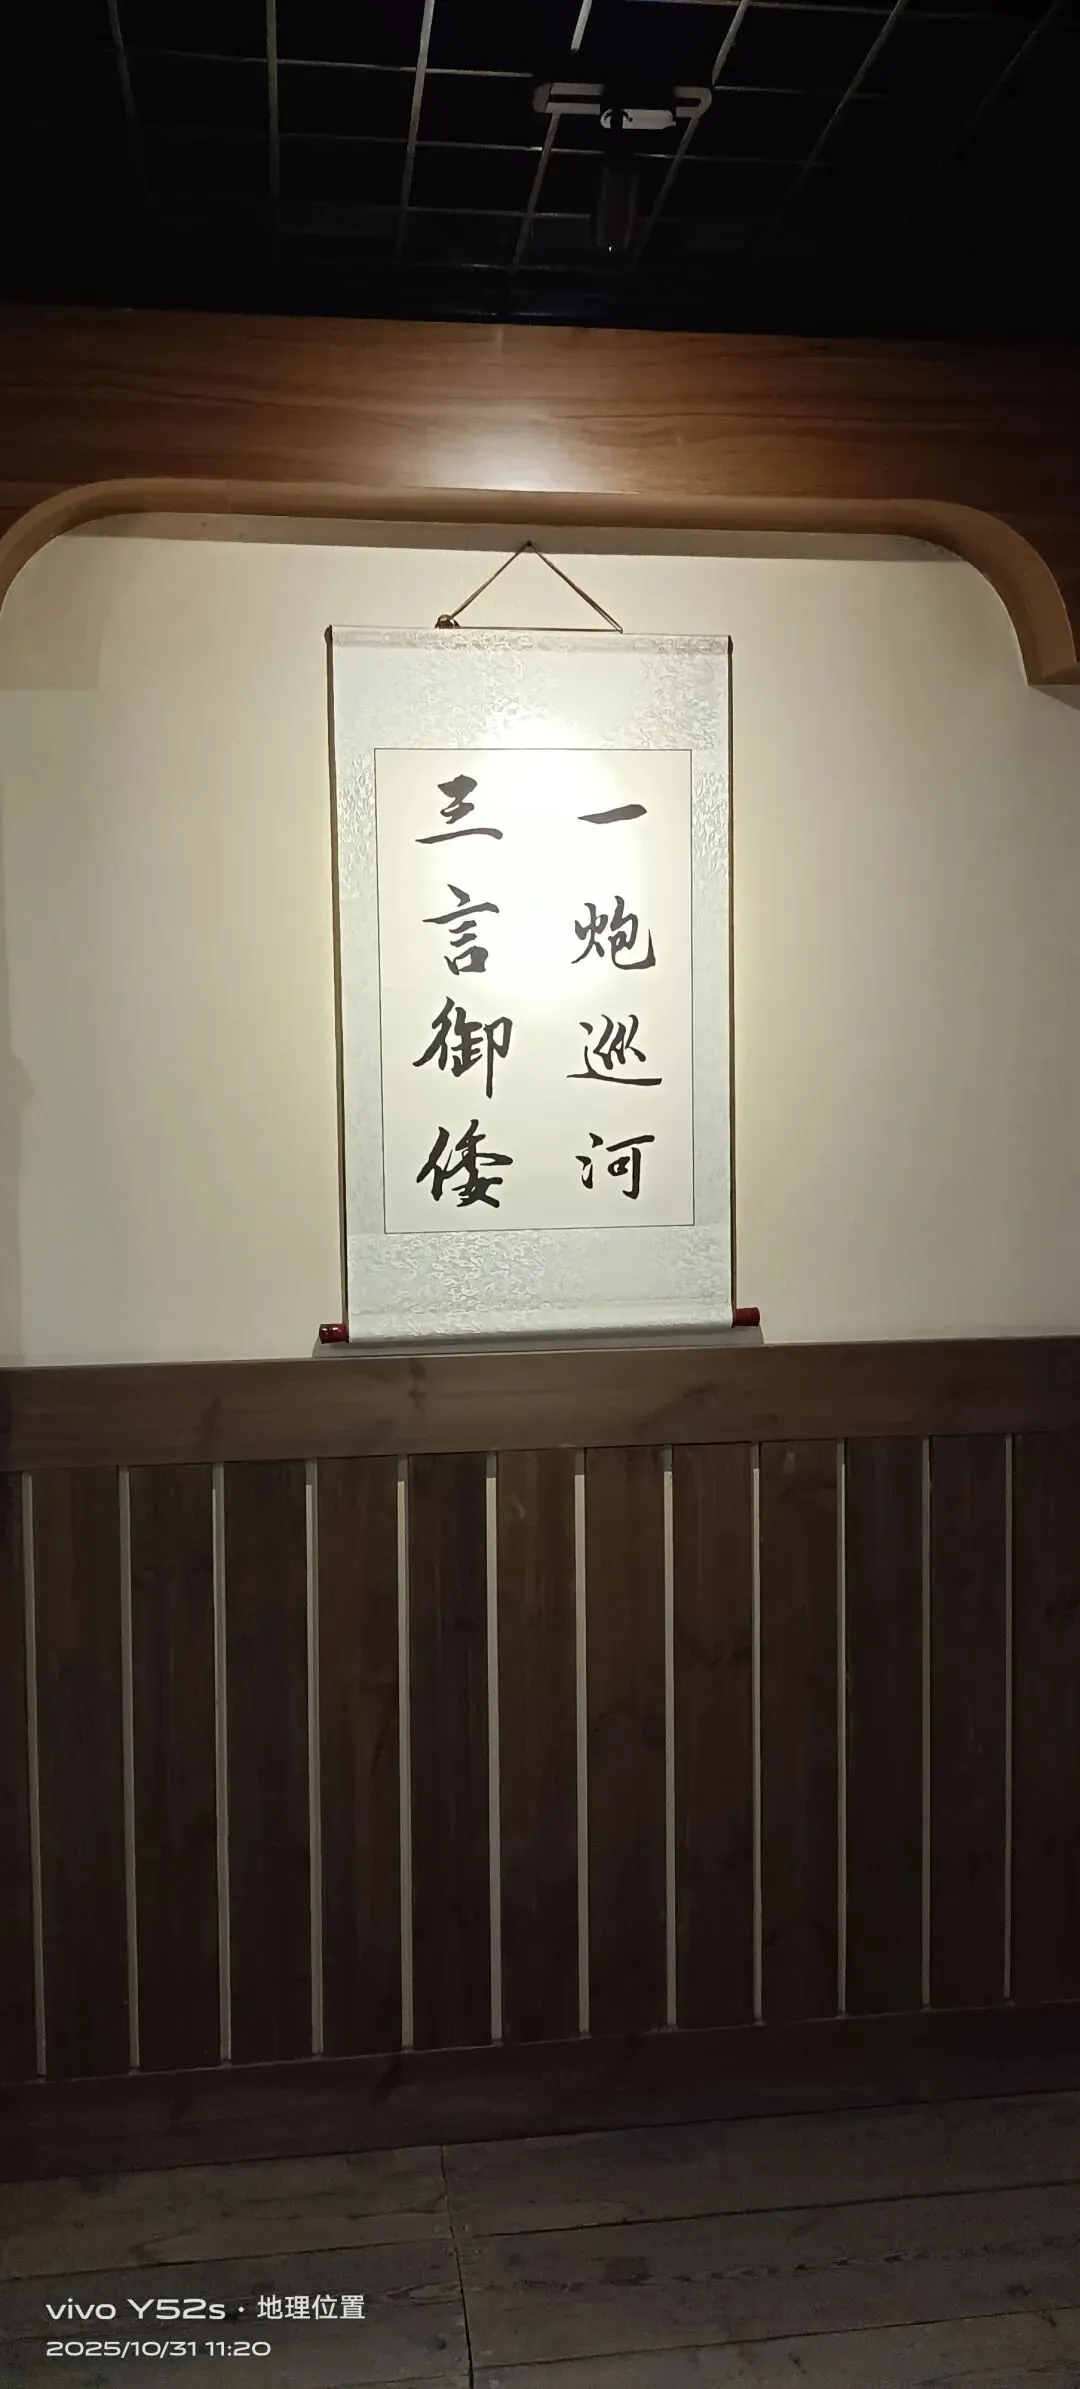 一炮巡河
三言御倭
vivo Y52s · 地理位置
2025/10/31 11:20